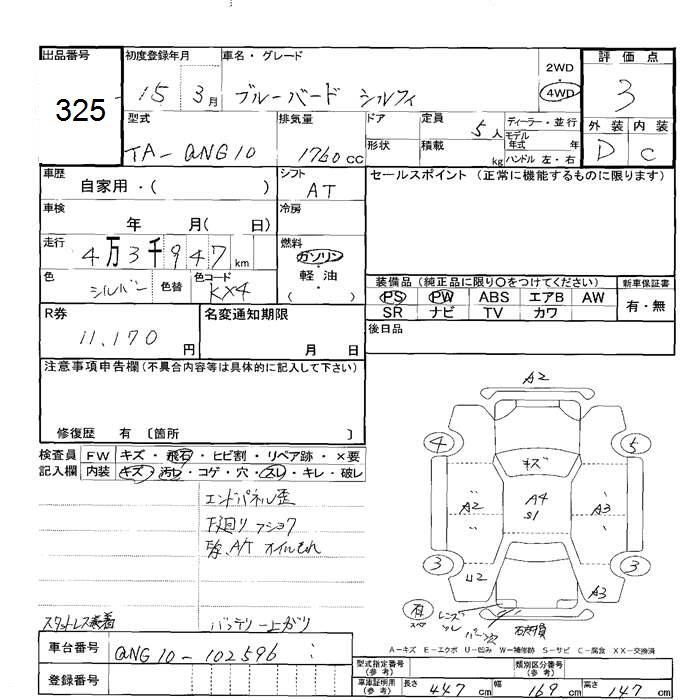 出品番号 初度登録年月 車名・グレード 2WD 評価点
325 15 3月 ブルーバード シルフィ 4WD 3
型式 排気量 ドア 定員 5人 ディーラー・並行 外装 内装
TA-QNG10 1760cc 形状 積載 kg モデル年式 年 D C
ハンドル 左・右
車歴 シフト セールスポイント（正常に機能するものに限ります）
自家用・( ) AT
車検 冷房
年 月( 日)
走行 燃料
4万3千947km ガソリン
色 色替 色コード 軽油 装備品（純正品に限り○をつけてください） 新車保証書
シルバー KX4 ( ) PS PW ABS エアB AW 有・無
R券 名変通知期限 SR ナビ TV カワ
11,170円 月 日 後日品
注意事項申告欄（不具合内容等は具体的に記入して下さい）
修復歴 有 〔箇所 〕
検査員 FW キズ・飛石・ヒビ割・リペア跡・×要
記入欄 内装 キズ・汚レ・コゲ・穴・スレ・キレ・破レ
エンドパネル歪
下廻り
A/T オイルもれ
スタットレス装着 バッテリー上がり
A2
4 5
キズ
A2 A4 A3
S1
3 3
U2 A3
有
レンズ
A-キズ E-エクボ U-凹み W-補修跡 S-サビ C-腐食 XX-交換済
車台番号 QNG10-102596
登録番号
型式指定番号（参考） 類別区分番号（参考）
車庫証明用（参考） 長さ 447cm 幅 169cm 高さ 147cm